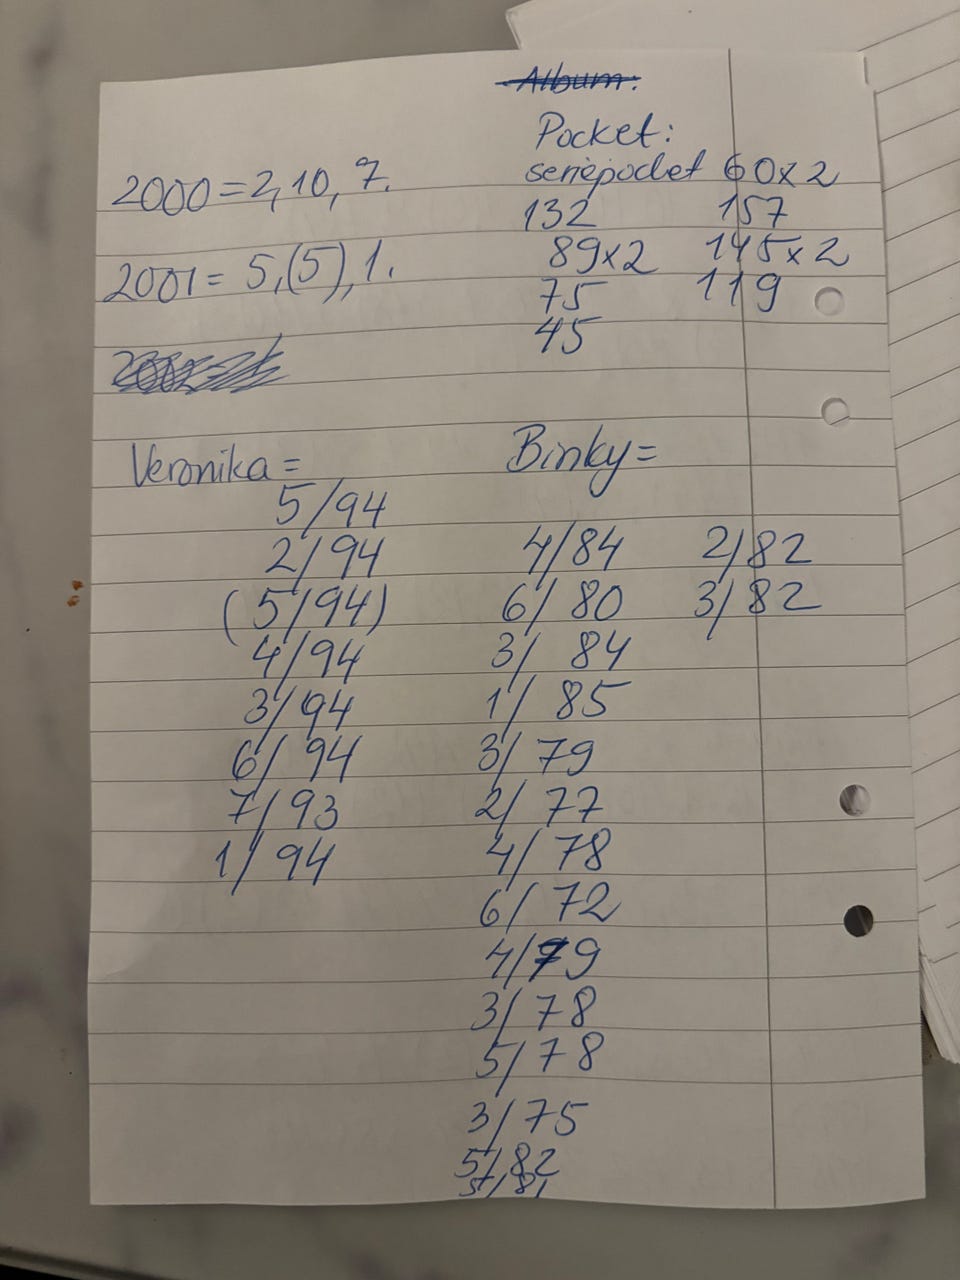 Album:
Pocket:
seriepocket 60x2
132 157
89x2 145x2
75 119
45
2000=2,10,7.
2001=5,(5),1.
Veronika=
5/94
2/94
(5/94)
4/94
3/94
6/94
7/93
1/94
Binky=
4/84 2/82
6/80 3/82
3/84
1/85
3/79
2/77
4/78
6/72
4/79
3/78
5/78
3/75
5/82
5/81